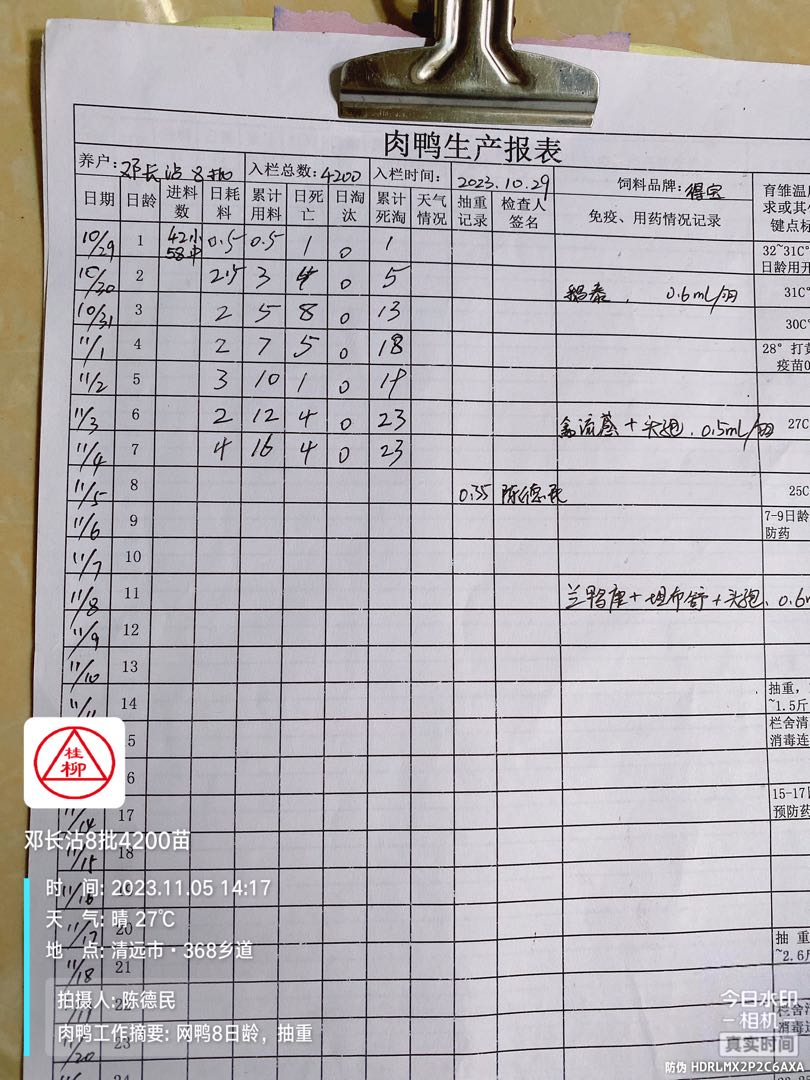 肉鸭生产报表
养户: 邓长沾 8批 入栏总数: 4200 入栏时间: 2023.10.29 饲料品牌: 得宝 育雏温度
日期 日龄 进料数 日耗料 累计用料 日死亡 日淘汰 累计死淘 天气情况 抽重记录 检查人签名 免疫、用药情况记录 求或其他键点标
10/29 1 42小 58中 0.5 0.5 1 0 1 32~31C° 日龄用开
10/30 2 2.5 3 4 0 5 0.6mL/羽 31C°
10/31 3 2 5 8 0 13 30C°
11/1 4 2 7 5 0 18 28° 打黄 疫苗0
11/2 5 3 10 1 0 19
11/3 6 2 12 4 0 23 禽流感+头孢. 0.5mL/羽 27C
11/4 7 4 16 4 0 23
11/5 8 0.35 陈德民 25C
11/6 9 7-9日龄 防药
11/7 10
11/8 11 +头孢. 0.6m
11/9 12
11/10 13
11/11 14 抽重, ~1.5斤
5 栏舍清 消毒连
6 15-17日 预防药
11/14 17
11/15 18
11/16
11/17 20 抽重 ~2.6斤
11/18 21
22 栏舍清 消毒连
11/20 23
24
桂柳
邓长沾8批4200苗
时 间: 2023.11.05 14:17
天 气: 晴 27℃
地 点: 清远市·368乡道
拍摄人: 陈德民
肉鸭工作摘要: 网鸭8日龄，抽重
今日水印
-相机-
真实时间
防伪 HDRLMX2P2C6AXA